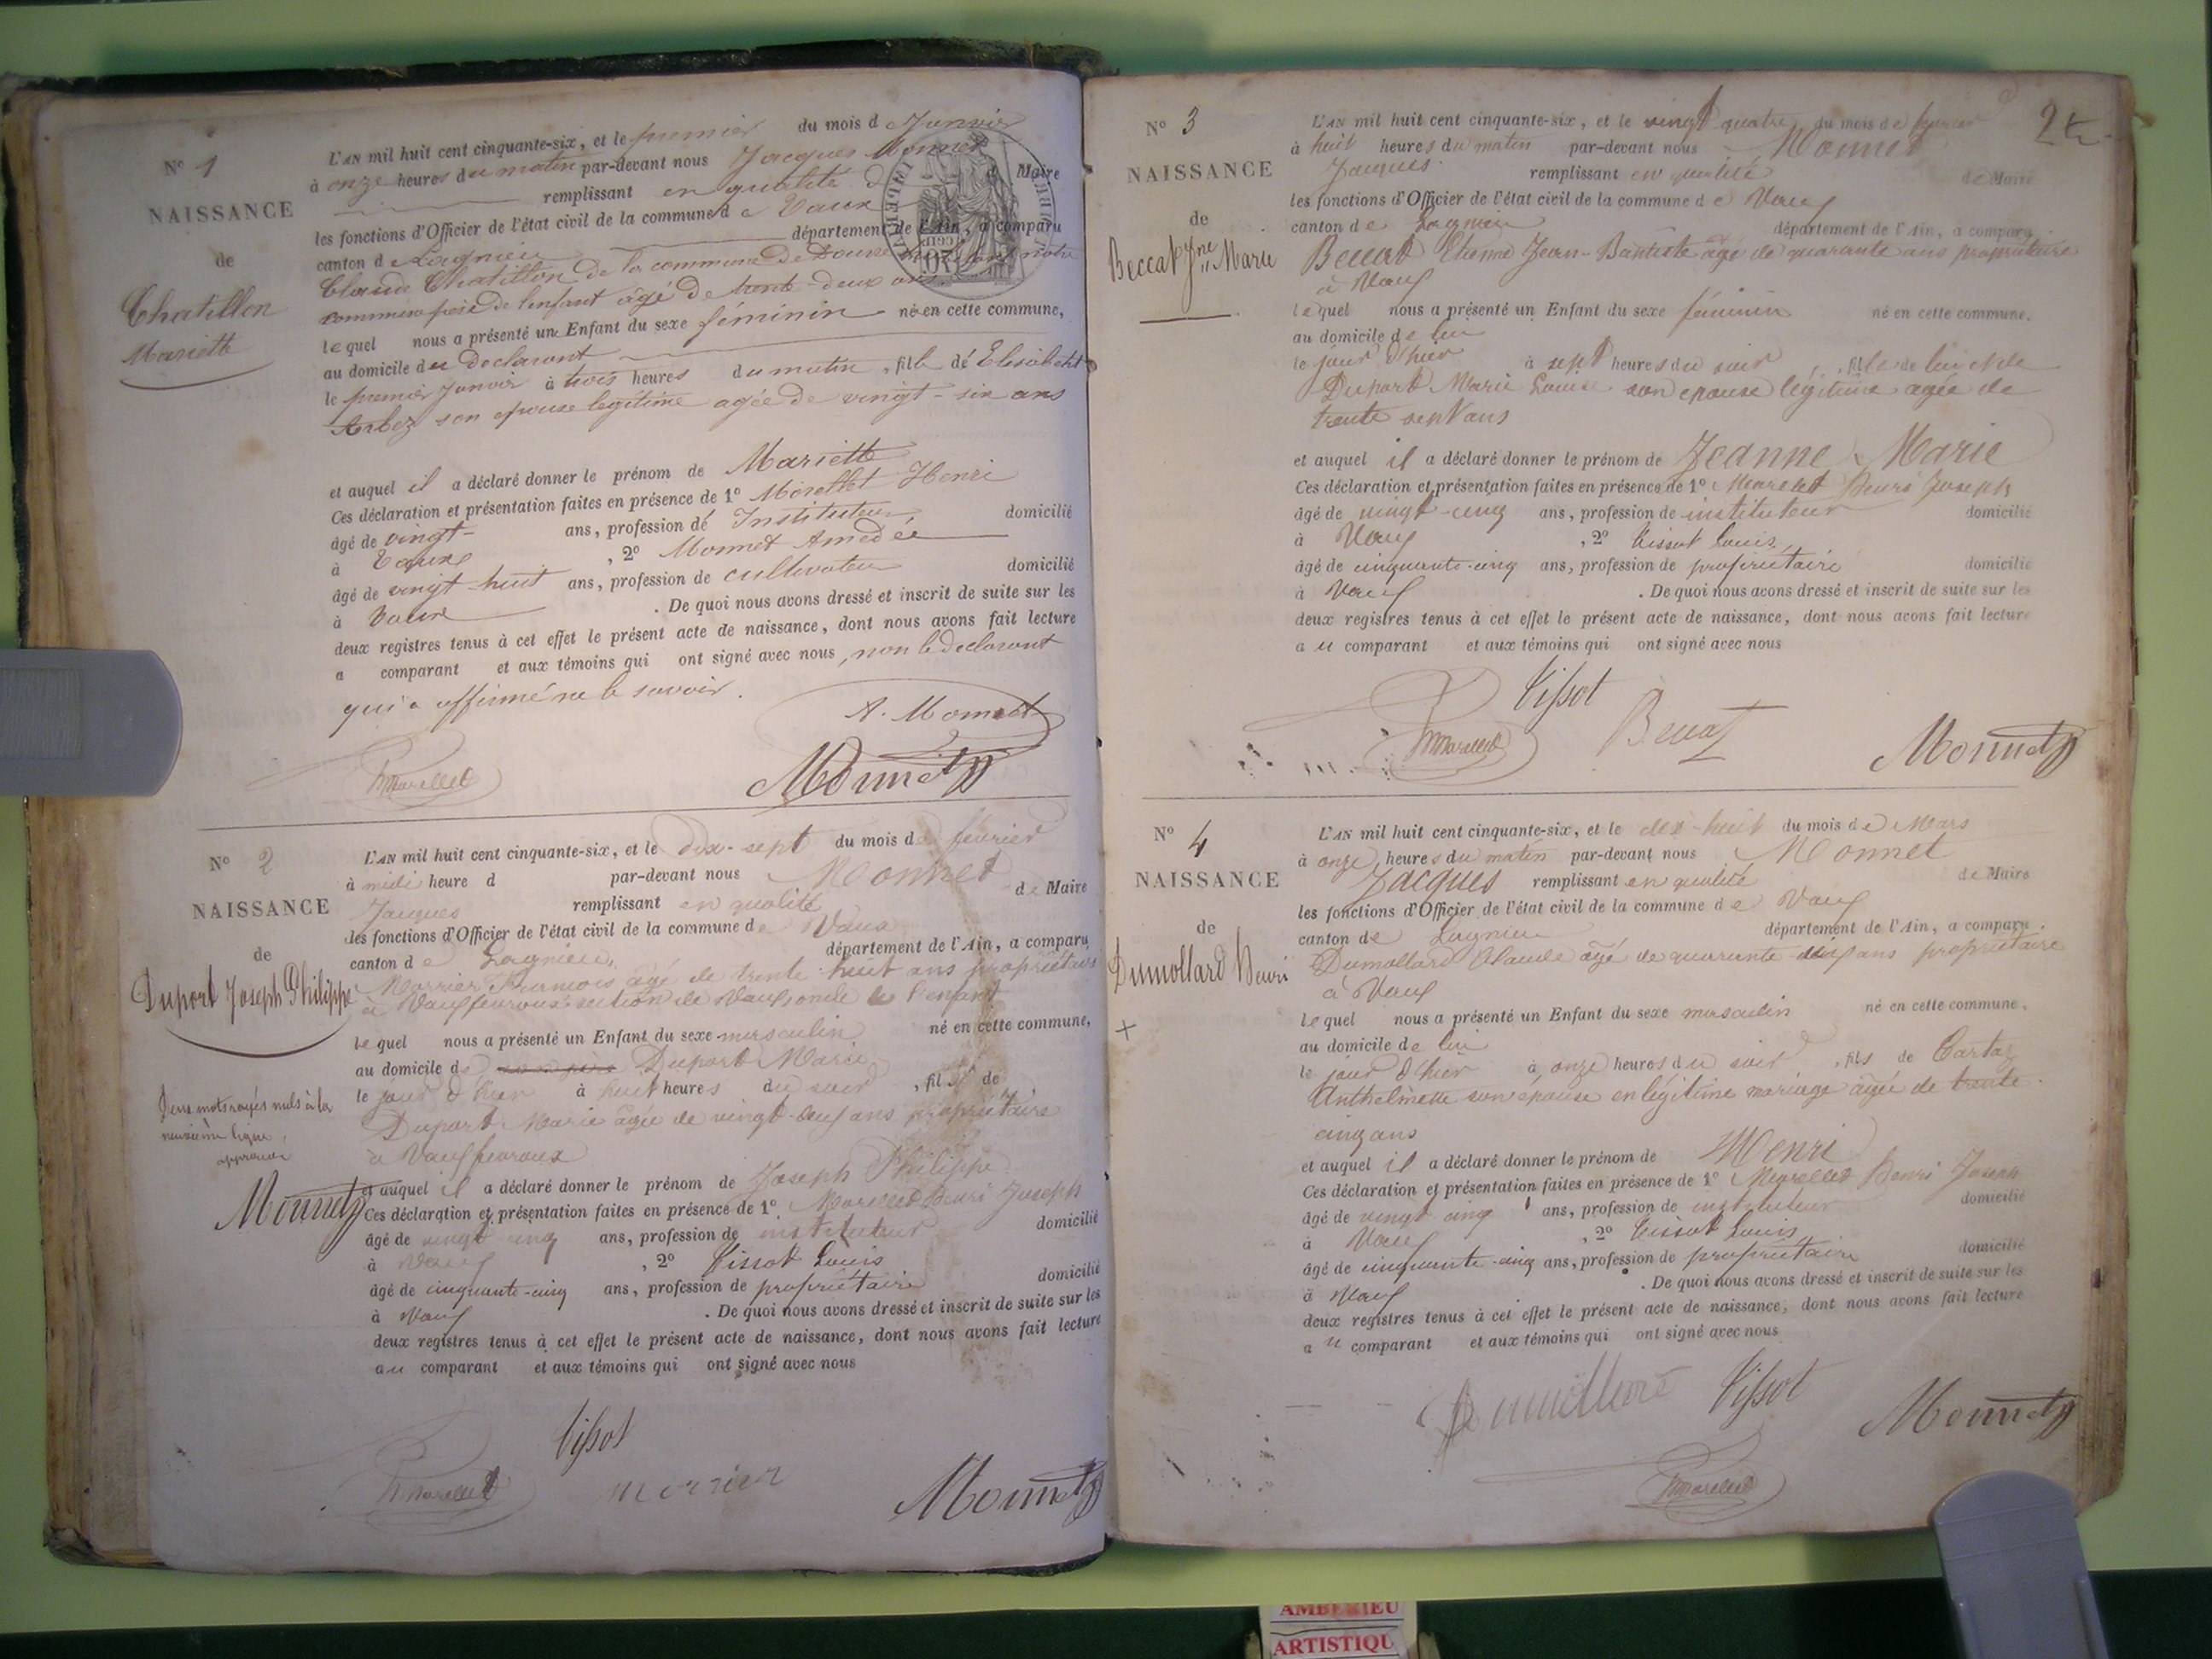 N° 1
NAISSANCE
de
Chatillon
Mariette
L'AN mil huit cent cinquante-six, et le premier du mois d Janvier
à onze heures du matin par-devant nous Jacques Monnet
remplissant en qualité d Maire
les fonctions d'Officier de l'état civil de la commune d e Vaux
canton de Lagnieu département de l'Ain, a comparu
Claude Chatillon de la commune de
commune père de l'enfant âgé de trente-deux ans
lequel nous a présenté un Enfant du sexe féminin né en cette commune,
au domicile du declarant
le premier Janvier à trois heures du matin, fille de Elisabeht
Arbez son epouse legitime agée de vingt-six ans
et auquel il a déclaré donner le prénom de Mariette
Ces déclaration et présentation faites en présence de 1° Morellet Henri
âgé de vingt- ans, profession de Instituteur domicilié
à Vaux, 2° Monnet Amedée
âgé de vingt-huit ans, profession de cultivateur domicilié
à Vaux. De quoi nous avons dressé et inscrit de suite sur les
deux registres tenus à cet effet le présent acte de naissance, dont nous avons fait lecture
a comparant et aux témoins qui ont signé avec nous, non le declarant
qui a affirmé ne le savoir.
A. Monnet
Morellet
Monnet
N° 2
NAISSANCE
de
Duport Joseph Philippe
Deux mots rayés nuls à la
neuvième ligne
Monnet
L'AN mil huit cent cinquante-six, et le dix-sept du mois de février
à midi heure d par-devant nous Monnet
Jacques remplissant en qualité de Maire
les fonctions d'Officier de l'état civil de la commune de Vaux
canton de Lagnieu, département de l'Ain, a comparu
Morrier François âgé de trente-huit ans propriétaire
à Vaux fevroux section de Vaux oncle de l'enfant
lequel nous a présenté un Enfant du sexe masculin né en cette commune,
au domicile de Duport Marie
le jour d'hier à huit heures du soir, fils de
Duport Marie âgée de vingt-neuf ans propriétaire
à Vaux fevroux
et auquel il a déclaré donner le prénom de Joseph Philippe
Ces déclaration et présentation faites en présence de 1° Morellet Henri Joseph
âgé de vingt cinq ans, profession de instituteur domicilié
à Vaux, 2° Tissot Louis
âgé de cinquante-cinq ans, profession de propriétaire domicilié
à Vaux. De quoi nous avons dressé et inscrit de suite sur les
deux registres tenus à cet effet le présent acte de naissance, dont nous avons fait lecture
au comparant et aux témoins qui ont signé avec nous
Tissot
Morellet morrier
Monnet
2
N° 3
NAISSANCE
de
Beccat Jne Marie
L'AN mil huit cent cinquante-six, et le vingt quatre du mois de février
à huit heures du matin par-devant nous Monnet
Jacques remplissant en qualité de Maire
les fonctions d'Officier de l'état civil de la commune de Vaux
canton de Lagnieu département de l'Ain, a comparu
Beccat Etienne Jean-Baptiste âgé de quarante ans propriétaire
à Vaux
lequel nous a présenté un Enfant du sexe féminin né en cette commune.
au domicile de lui
le jour d'hier à sept heures du soir, fille de lui et de
Duport Marie Louise son epouse légitime agée de
trente sept ans
et auquel il a déclaré donner le prénom de Jeanne Marie
Ces déclaration et présentation faites en présence de 1° Morellet Henri Joseph
âgé de vingt-cinq ans, profession de instituteur domicilié
à Vaux, 2° Tissot Louis
âgé de cinquante-cinq ans, profession de propriétaire domicilié
à Vaux. De quoi nous avons dressé et inscrit de suite sur les
deux registres tenus à cet effet le présent acte de naissance, dont nous avons fait lecture
au comparant et aux témoins qui ont signé avec nous
Tissot
Morellet Beccat
Monnet
N° 4
NAISSANCE
de
Dumollard Henri
L'AN mil huit cent cinquante-six, et le dix-huit du mois de Mars
à onze heures du matin par-devant nous Monnet
Jacques remplissant en qualité de Maire
les fonctions d'Officier de l'état civil de la commune de Vaux
canton de Lagnieu département de l'Ain, a comparu.
Dumollard Claude âgé de quarante-six ans propriétaire
à Vaux
lequel nous a présenté un Enfant du sexe masculin né en cette commune,
au domicile de lui
le jour d'hier à onze heures du soir, fils de Cartaz
Anthelmette son épouse en légitime mariage âgée de trente
cinq ans
et auquel il a déclaré donner le prénom de Henri
Ces déclaration et présentation faites en présence de 1° Morellet Henri Joseph
âgé de vingt cinq ans, profession de instituteur domicilié
à Vaux, 2° Tissot Louis
âgé de cinquante-cinq ans, profession de propriétaire domicilié
à Vaux. De quoi nous avons dressé et inscrit de suite sur les
deux registres tenus à cet effet le présent acte de naissance, dont nous avons fait lecture
au comparant et aux témoins qui ont signé avec nous
Dumollard Tissot
Monnet
Morellet
AMBERIEU
ARTISTIQU